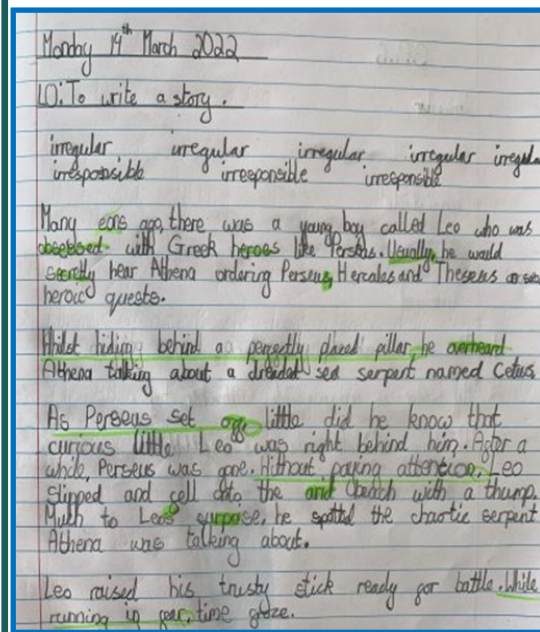 Monday 14th March 2022
LO: To write a story.
irregular irregular irregular irregular
irresponsible irresponsible irresponsible
Many ears ago, there was a young boy called Leo who was
obsessed with Greek heroes like Perseus. Usually, he would
secretly hear Athena ordering Perseus, Hercules and Theseus on
heroic quests.
Whilst hiding behind a perfectly placed pillar, he overheard
Athena talking about a dreaded sea serpent named Cetus
As Perseus set off, little did he know that
curious little Leo was right behind him. After a
while, Perseus was gone. Without paying attention, Leo
slipped and fell onto the arid beach with a thump.
Much to Leo's surprise, he spotted the chaotic serpent
Athena was talking about.
Leo raised his trusty stick ready for battle. While
running in fear, time froze.